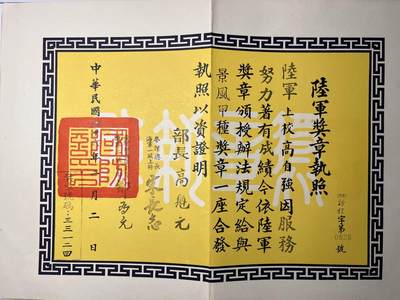 陸軍獎章執照
字第
號
陸軍上校高自強因服務
努力著有成績今依陸軍
獎章頒授辦法規定給與
景風甲種獎章一座合發
執照以資證明
部長高魁元
參謀總長
海軍一級上將宋長志
中華民國 年 月二日
三三一二四